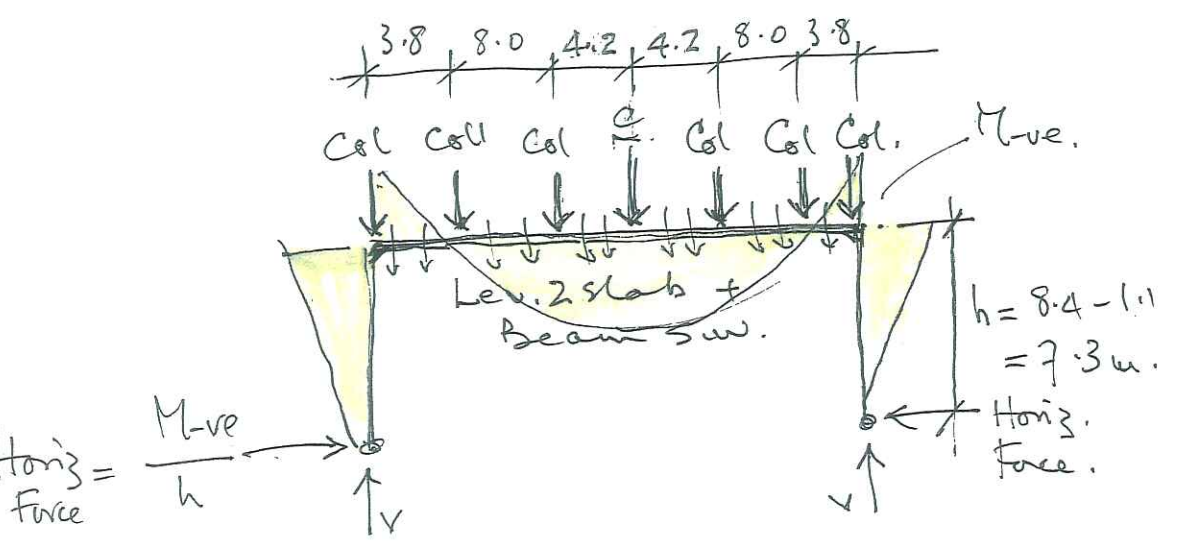 3.8 8.0 4.2 4.2 8.0 3.8
Col Coll Col C Col Col Col.
M-ve.
Lev. 2 slab +
Beam sw.
h = 8.4 - 1.1
= 7.3 m.
Horiz.
Force.
M-ve
Horiz =
Force
h
V V